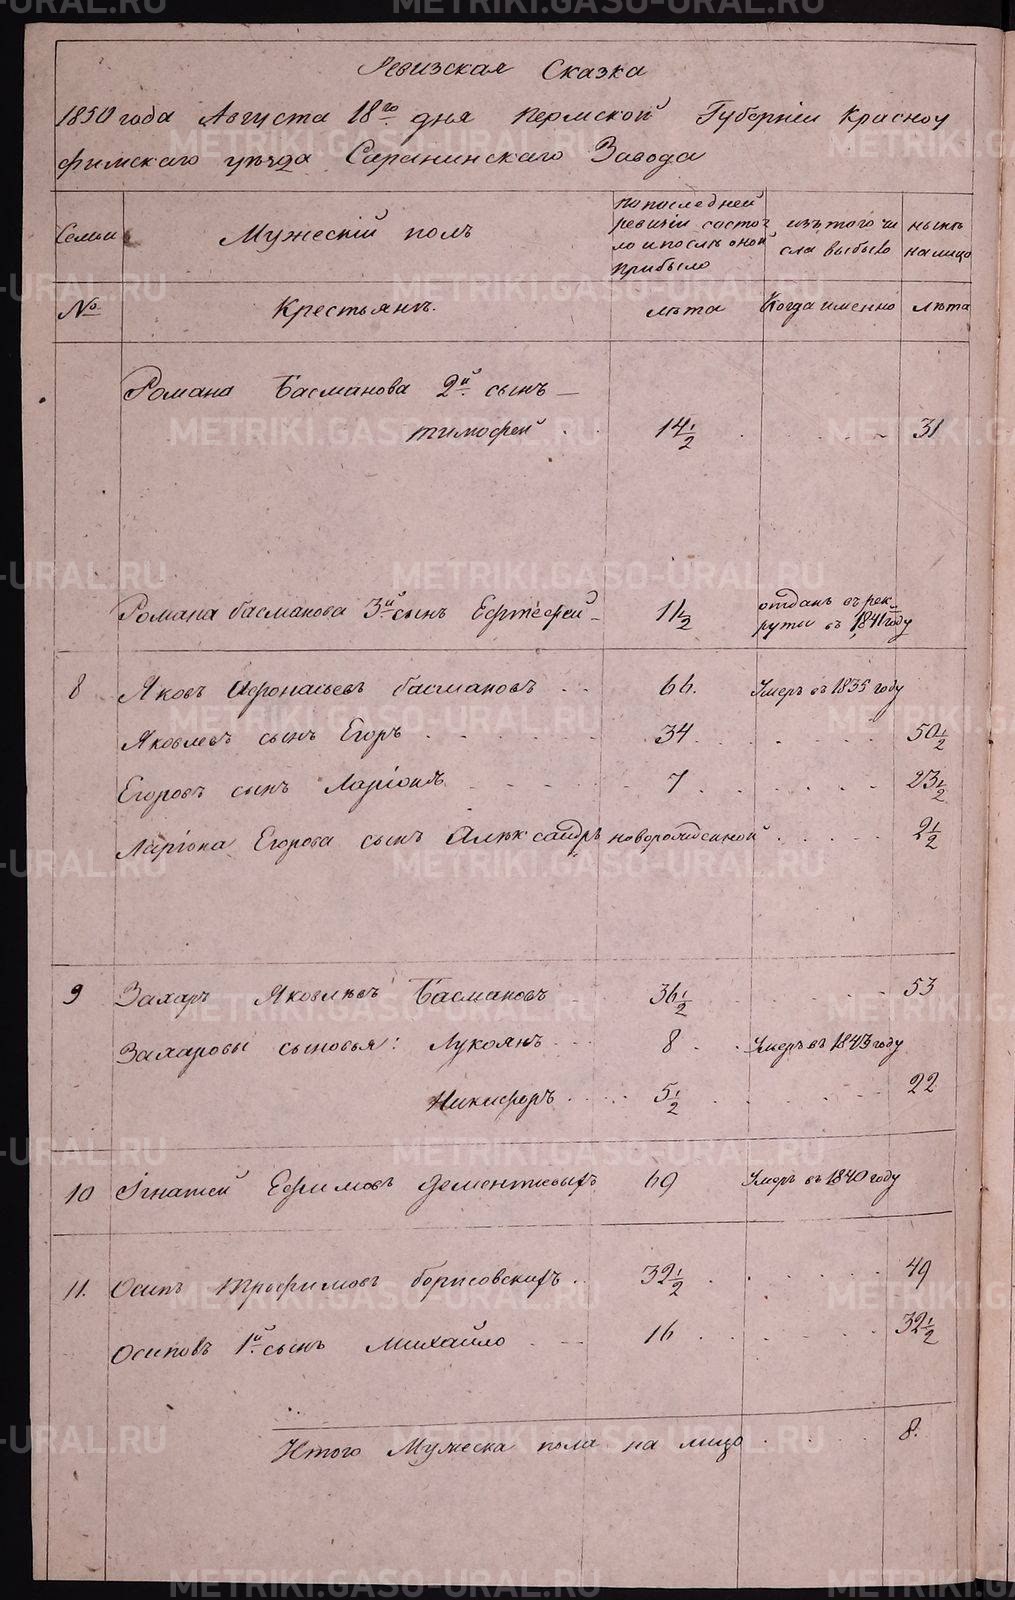 Ревизская Сказка
1850 года Августа 18го дня Пермской Губернiи Красноу
фимскаго уѣзда Саранинскаго Завода
Семьи
Мужескiй полъ
по последней
ревизiи состоя
ло и послѣ оной
прибыло
изъ того чи
сла выбыло
нынѣ
на лицо
№
Крестьянъ.
лѣта
Когда именно
лѣта
Романа Басманова 2й сынъ
тимофей 14 1/2 31
Романа басманова 3й сынъ 11 1/2 отданъ въ рек
руты въ 1841 году
8 Яковъ Афонасьевъ басмановъ 66. Умеръ въ 1835 году
Яковлевъ сынъ Егоръ 34 50 1/2
Егоровъ сынъ Ларiонъ 7 23 1/2
Ларiона Егорова сынъ Александръ новорожденной 2 1/2
9 Захаръ Яковлевъ Басмановъ 36 1/2 53
Захаровы сыновья: Лукоянъ 8 Умеръ въ 1843 году
Никифоръ 5 1/2 22
10 Iгнатей Ефимовъ Дементьевыхъ 69 Умеръ въ 1840 году
11. Осипъ трофимовъ борисовскихъ 32 1/2 49
Осиповъ 1й сынъ Михайло 16 32 1/2
Итого Мужеска пола на лицо 8.
METRIKI.GASO-URAL.RU